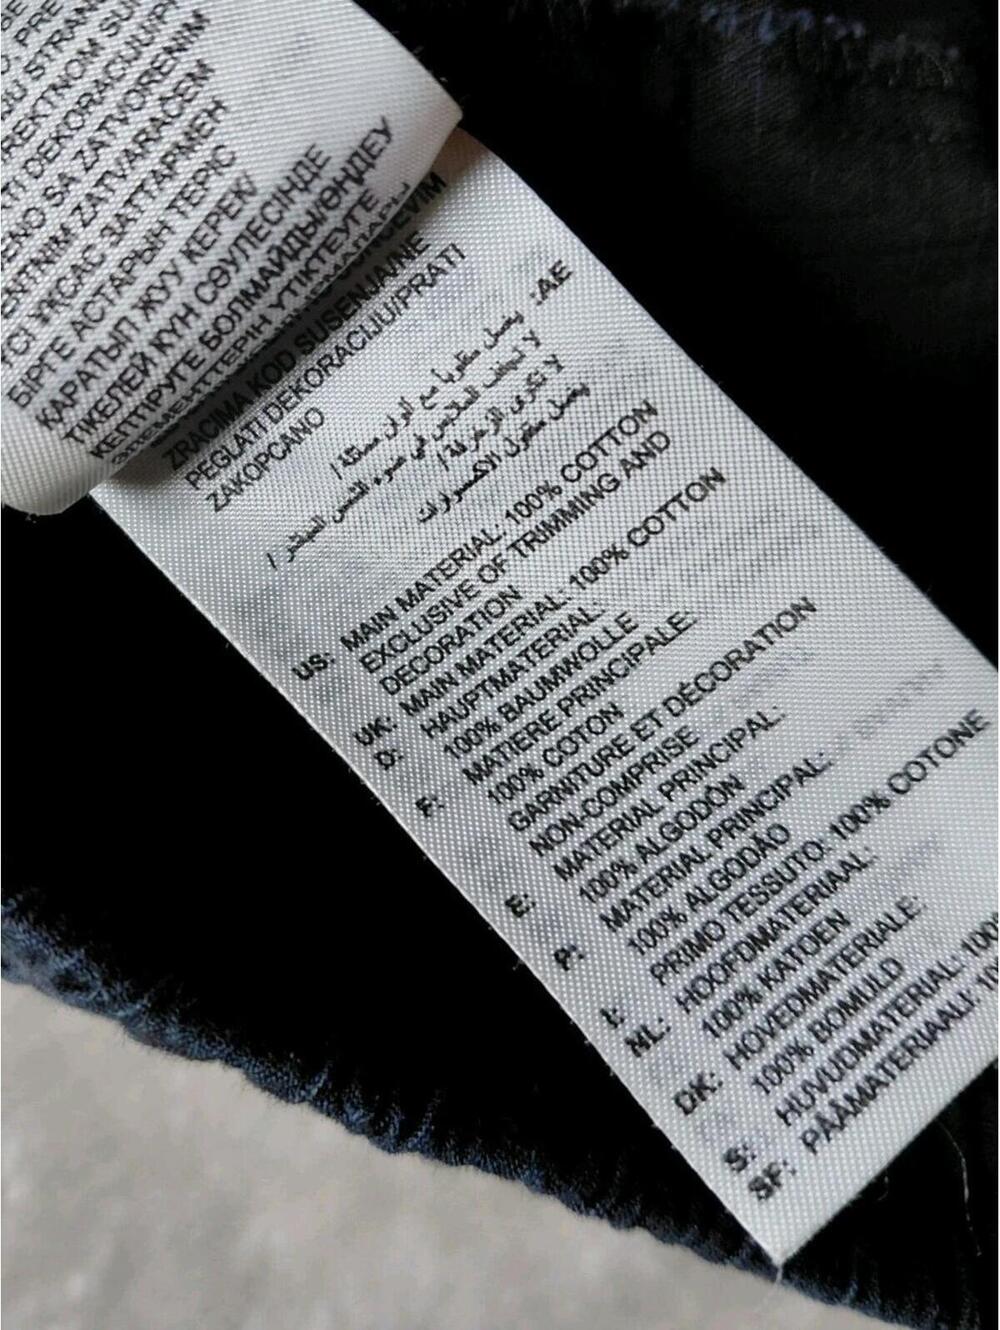 REKTNOM SU
TI DEKORACIJU/PR
ENO SA ZATVORENIM
ENTNIM ZATVARAČEM
ТСІ ҰҚСАС ЗАТТАРМЕН
БІРГЕ АСТАРЫН ТЕРІС
ҚАРАТЫП ЖУУ КЕРЕК/
ТІКЕЛЕЙ КҮН СӘУЛЕСІНДЕ
КЕПТІРУГЕ БОЛМАЙДЫ/ӨҢДЕУ
ЭЛЕМЕНТТЕРІН ҮТІКТЕУГЕ
ZRACIMA KOD SUSENJA/NE
PEGLATI DEKORACIJU/PRATI
ZAKOPCANO
:AE
يغسل مقلوبا مع ألوان مماثلة /
لا تجفف الملابس في ضوء الشمس المباشر /
لا تكوى الزخرفة /
يغسل مقفول الاكسسوارات
US: MAIN MATERIAL: 100% COTTON
EXCLUSIVE OF TRIMMING AND
DECORATION
UK: MAIN MATERIAL: 100% COTTON
D: HAUPTMATERIAL:
100% BAUMWOLLE
F: MATIERE PRINCIPALE:
100% COTON
GARNITURE ET DÉCORATION
NON-COMPRISE
E: MATERIAL PRINCIPAL:
100% ALGODÓN
P: MATERIAL PRINCIPAL:
100% ALGODÃO
I: PRIMO TESSUTO: 100% COTONE
NL: HOOFDMATERIAAL:
100% KATOEN
DK: HOVEDMATERIALE:
100% BOMULD
S: HUVUDMATERIAL: 100
SF: PÄÄMATERIAALI: 10